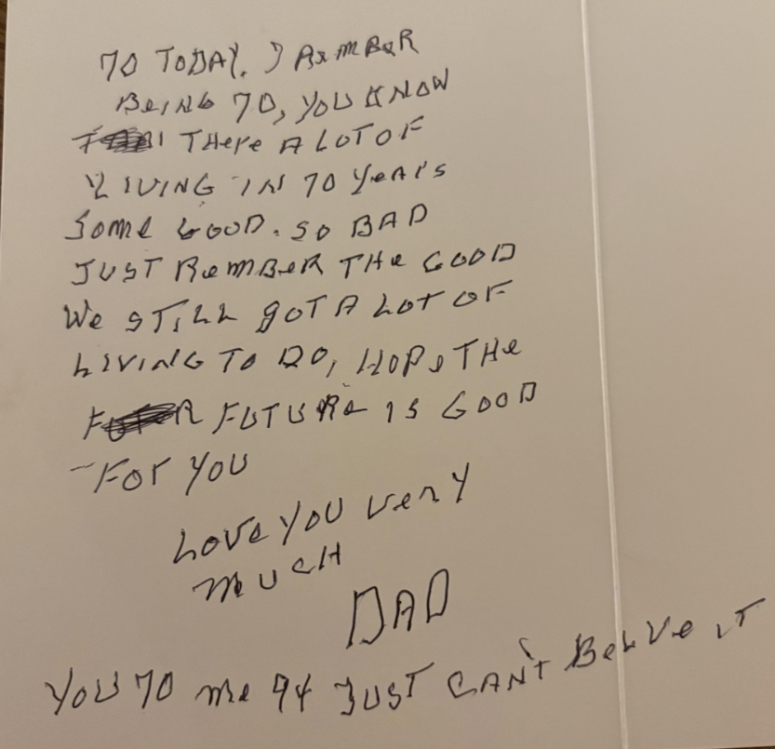 70 TODAY. I REMBER
BEING 70, YOU KNOW
THERE A LOT OF
LIVING IN 70 YEARS
SOME GOOD. SO BAD
JUST REMBER THE GOOD
WE STILL GOT A LOT OF
LIVING TO DO, HOPE THE
FUTURE IS GOOD
FOR YOU
LOVE YOU VERY
MUCH
DAD
YOU 70 ME 94 JUST CAN'T BELVE IT